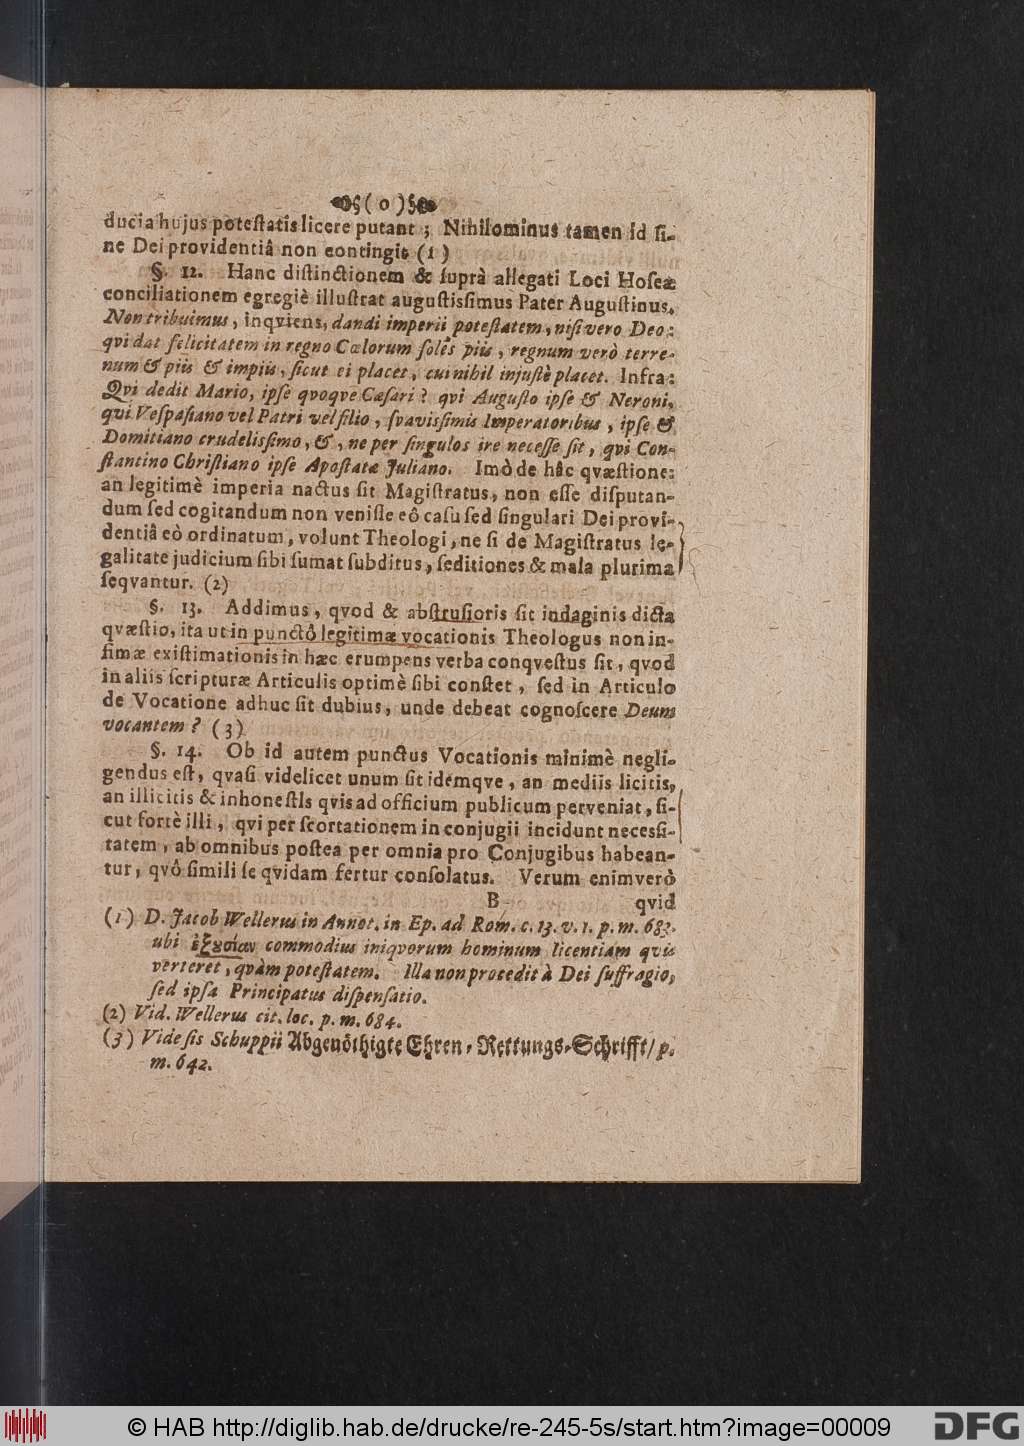 §( o )§
ducia hujus poteſtatis licere putant ; Nihilominus tamen id ſi-
ne Dei providentiâ non contingit (1)
§. 12. Hanc diſtinctionem & ſuprà allegati Loci Hoſeæ
conciliationem egregiè illuſtrat auguſtisſimus Pater Auguſtinus.
Non tribuimus, inqviens, dandi imperii poteſtatem, niſi vero Deo:
qvi dat felicitatem in regno Cœlorum ſolis piis, regnum verò terre-
num & piis & impiis, ſicut ei placet, cui nihil injuſtè placet. Infra:
Qvi dedit Mario, ipſe qvoqve Cæſari? qvi Auguſto ipſe & Neroni,
qui Veſpaſiano vel Patri vel filio, ſvavisſimis Imperatoribus, ipſe &
Domitiano crudelisſimo, &, ne per ſingulos ire neceſſe ſit, qvi Con-
ſtantino Chriſtiano ipſe Apoſtatæ Juliano. Imò de hâc qvæſtione:
an legitimè imperia nactus ſit Magiſtratus, non eſſe diſputan-
dum ſed cogitandum non veniſſe eô caſu ſed ſingulari Dei provi-
dentiâ eò ordinatum, volunt Theologi, ne ſi de Magiſtratus le-
galitate judicium ſibi ſumat ſubditus, ſeditiones & mala plurima
ſeqvantur. (2)
§. 13. Addimus, qvod & abſtruſioris ſit indaginis dicta
qvæſtio, ita ut in punctô legitimæ vocationis Theologus non in-
ſimæ exiſtimationis in hæc erumpens verba conqveſtus ſit, qvod
in aliis ſcripturæ Articulis optimè ſibi conſtet, ſed in Articulo
de Vocatione adhuc ſit dubius, unde debeat cognoſcere Deum
vocantem? (3)
§. 14. Ob id autem punctus Vocationis minimè negli-
gendus eſt, qvaſi videlicet unum ſit idemqve, an mediis licitis,
an illicitis & inhoneſtls qvis ad officium publicum perveniat, ſi-
cut fortè illi, qvi per ſcortationem in conjugii incidunt necesſi-
tatem, ab omnibus poſtea per omnia pro Conjugibus habean-
tur, qvô ſimili ſe qvidam fertur conſolatus. Verum enimverò
B qvid
(1) D. Jacob Wellerus in Annot. in Ep. ad Rom. c. 13. v. 1. p. m. 683.
ubi ἐξουσίαν commodius iniqvorum hominum licentiam qvis
verteret, qvàm poteſtatem. Illa non procedit à Dei ſuffragio,
ſed ipſa Principatus diſpenſatio.
(2) Vid. Wellerus cit. loc. p. m. 684.
(3) Vide ſis Schuppii Abgenöthigte Ehren-Rettungs-Schrifft/ p.
m. 642.
© HAB http://diglib.hab.de/drucke/re-245-5s/start.htm?image=00009
DFG